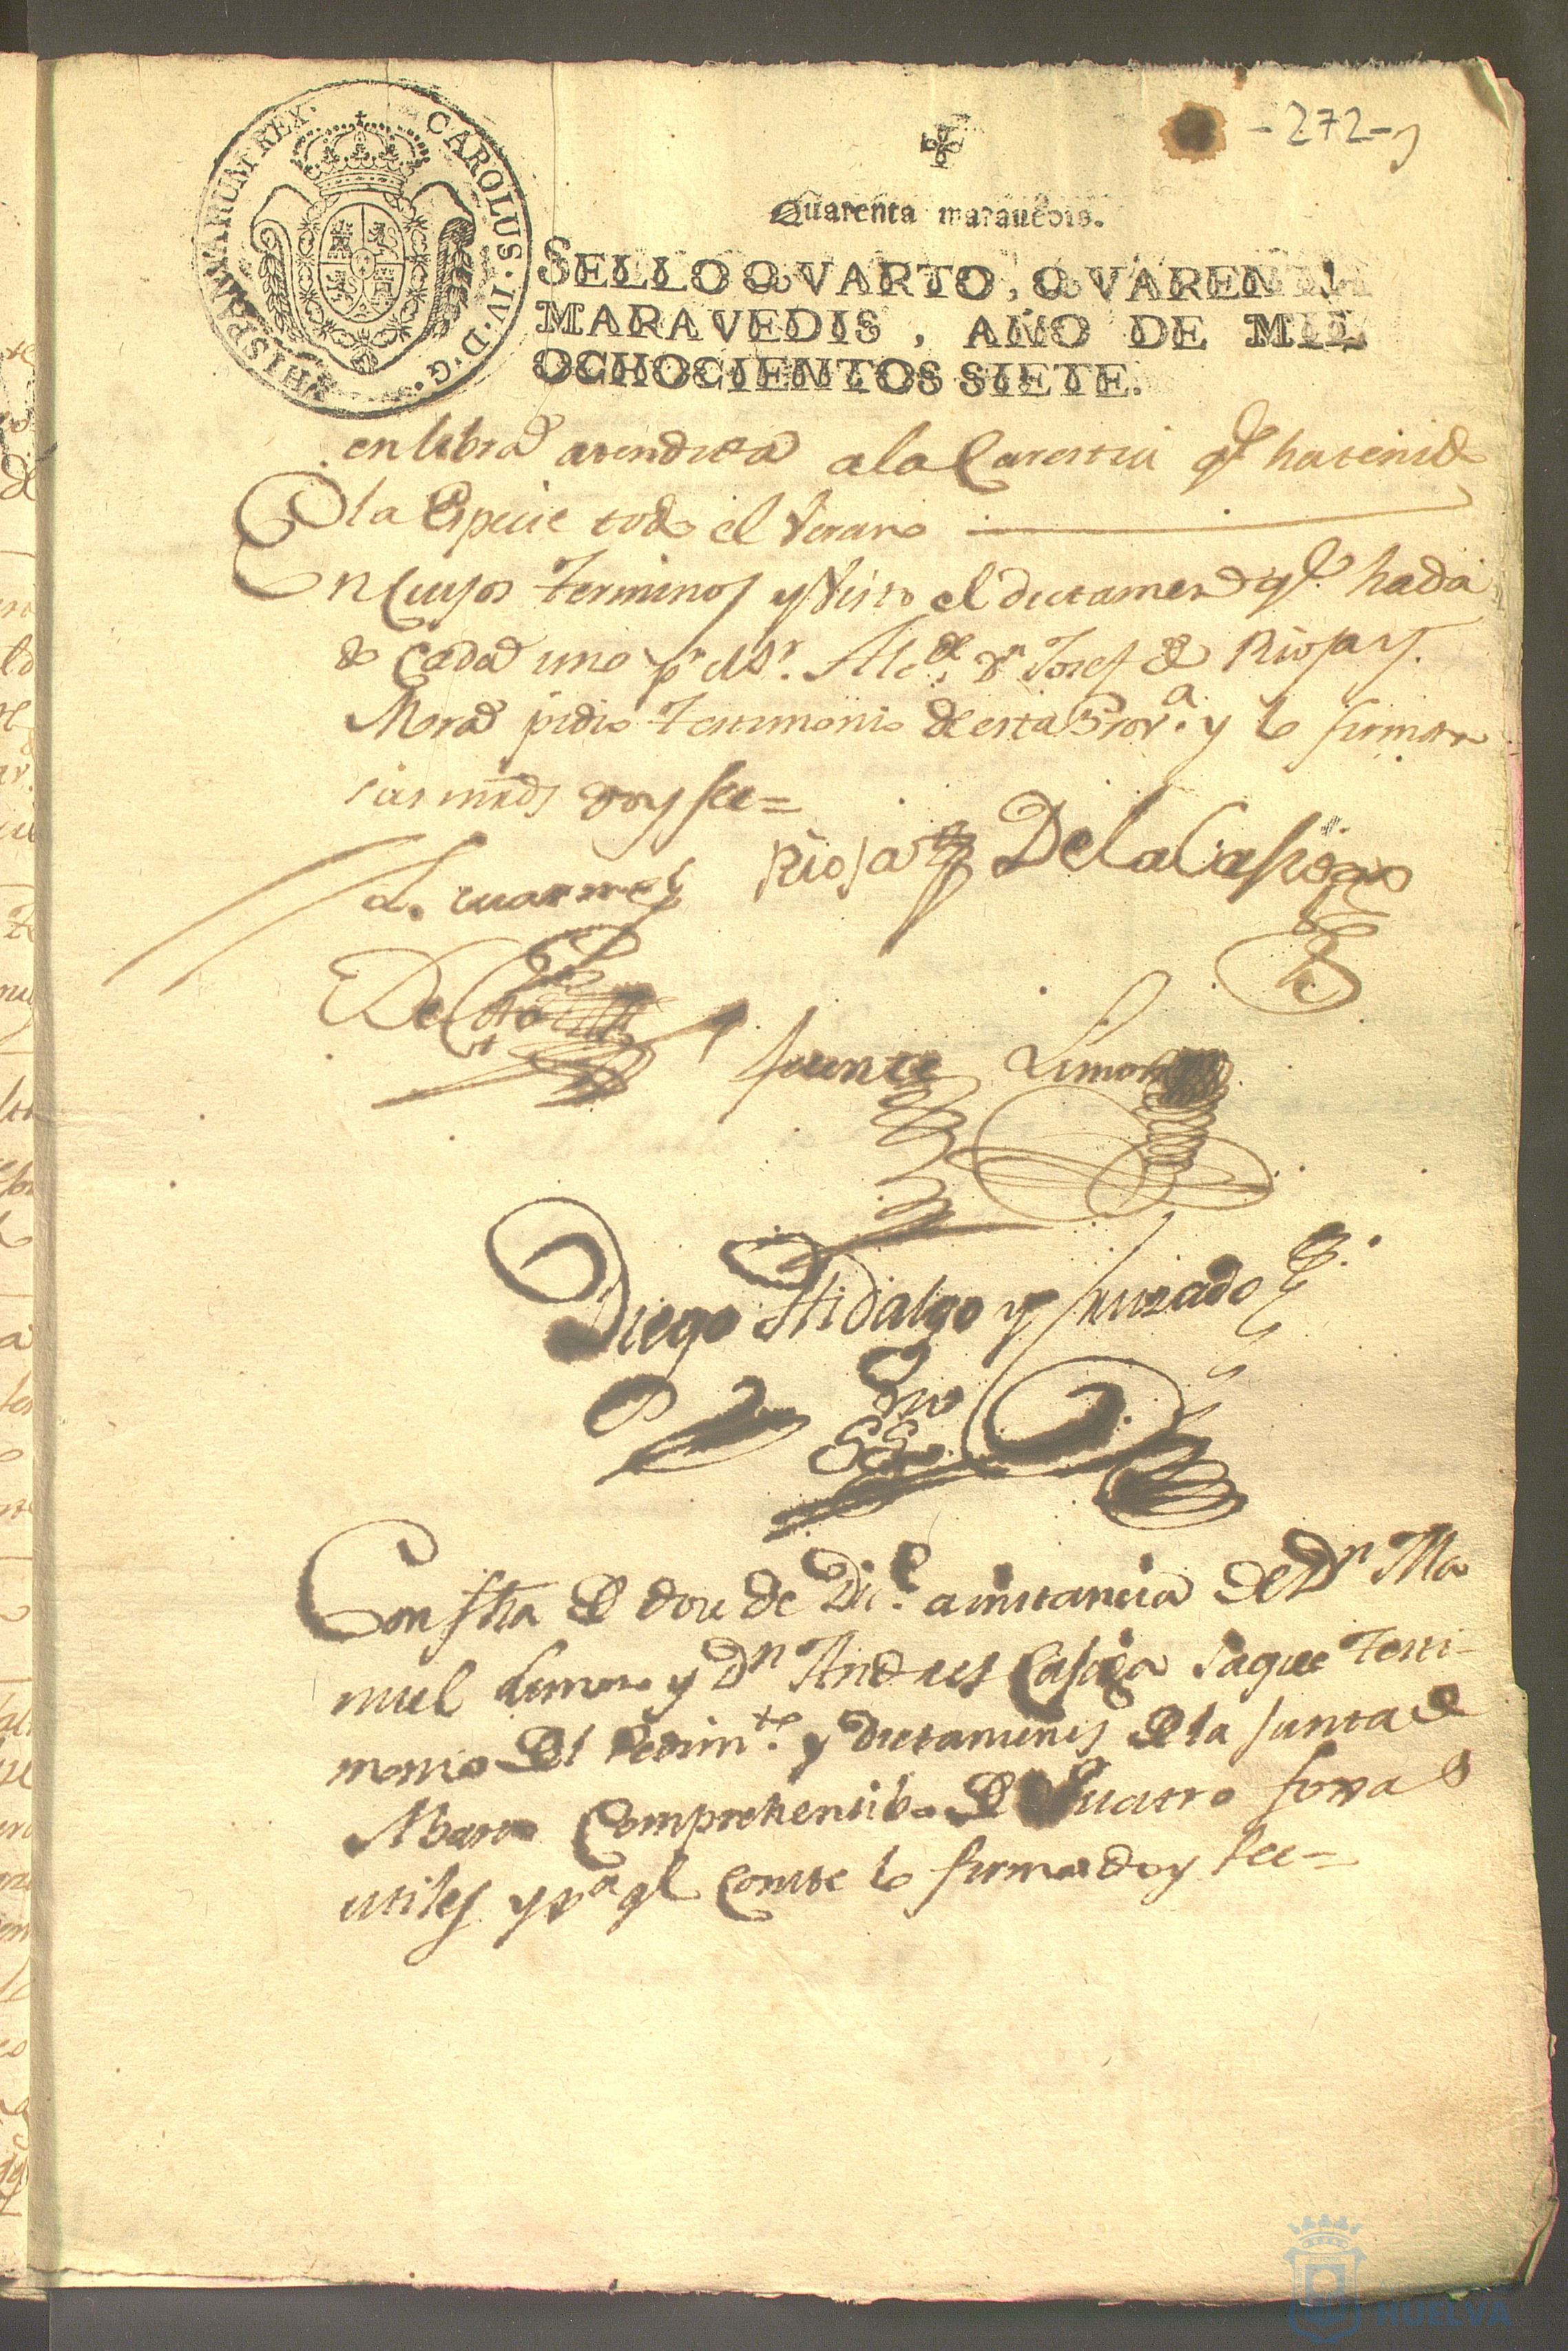 HISPANIARUM REX. CAROLUS. IV. D. G.
-272-
Quarenta maravedis.
SELLO QVARTO, QVARENTA
MARAVEDIS, AÑO DE MIL
OCHOCIENTOS SIETE.
en libra atendida ala Carestia qe. ha tenido
la Especie todo el Verano
En Cuyos terminos y Visto el dictamen qe. ha da
do Cada uno pr. el Sr. Alcde. Dn Josef de Rioja y
Mora pidio testimonio de esta Prova. y lo firmaron
sus mrds doy fee =
Rioja De la Casiga
De
fuente Limon
Diego Hidalgo y Juzado
Con fha de doze de Die. a instancia de Dn Ma
nuel Limon y Dn Andres Casiga saque testi-
monio del Pedimte. y dictamenes de la Junta de
Abasto Comprehensibo de Quatro foxas
utiles y pa qe Conste lo firmo doy fee =
HUELVA